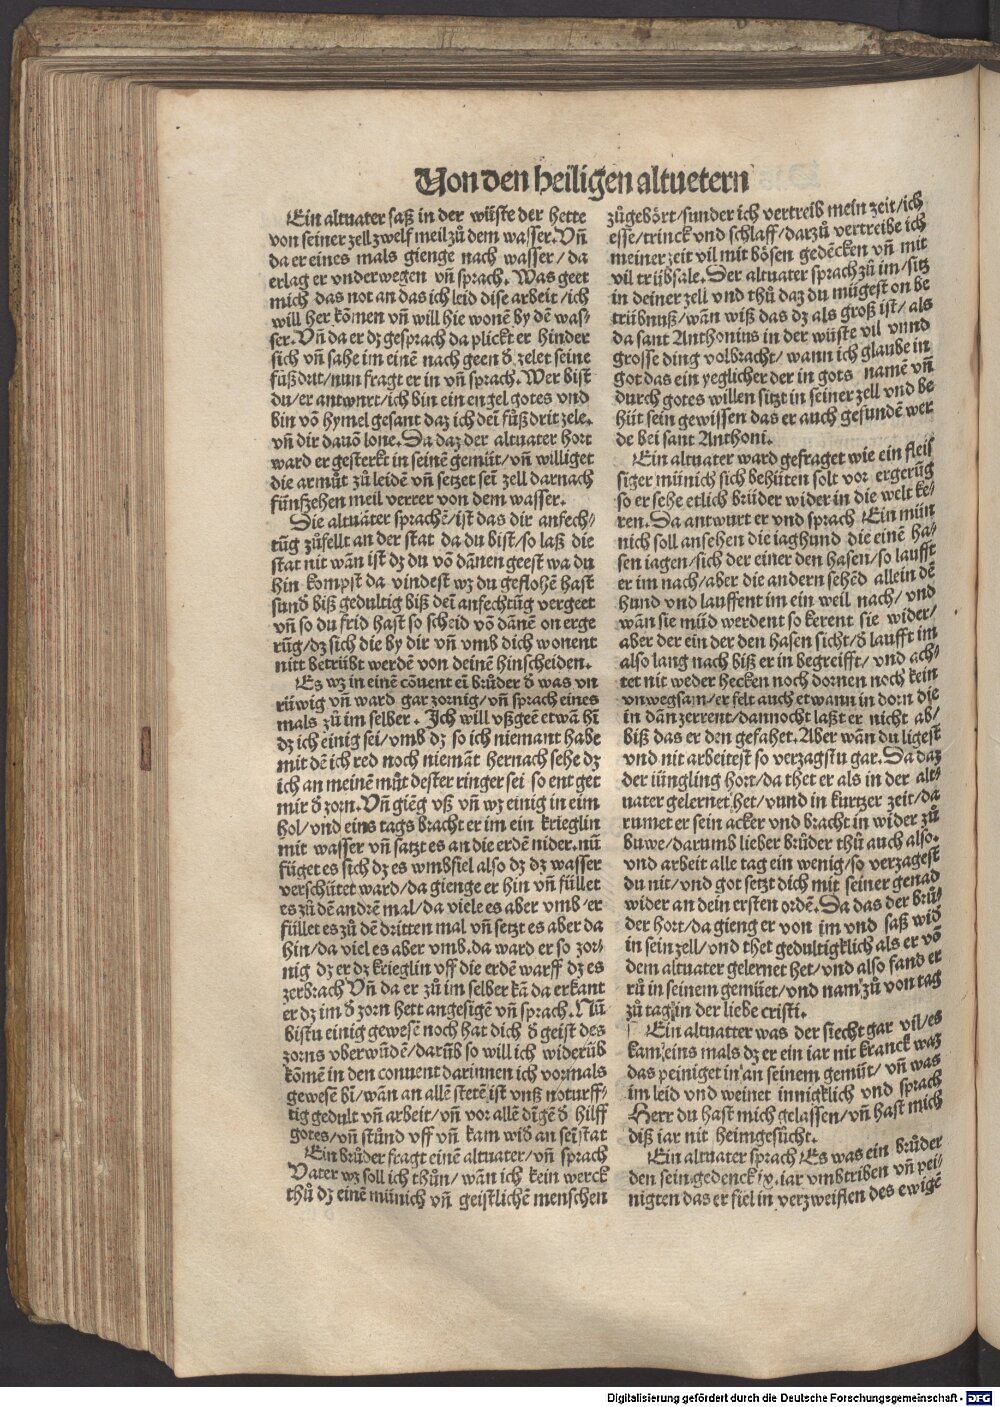 Von den heiligen altuetern
Ein altuater saß in der wüste der hette
von seiner zell zwelf meil zů dem wasser. Vñ
da er eines mals gienge nach wasser / da
erlag er vnderwegen vñ sprach. Was geet
mich das not an das ich leid dise arbeit / ich
will her kõmen vñ will hie wonẽ by dẽ was-
ser. Vñ da er dz gesprach da plickt er hinder
sich vñ sahe im einẽ nach geen d̕ zelet seine
fůßdrit / nun fragt er in vñ sprach. Wer bist
du / er antwurt / ich bin ein engel gotes vnd
bin võ hymel gesant daz ich deĩ fůßdrit zele.
vñ dir dauõ lone. Da daz der altuater hort
ward er gesterkt in seinẽ gemüt / vñ williget
die armůt zů leidẽ vñ setzet seĩ zell darnach
fünfzehen meil verrer von dem wasser.
Die altuäter sprachẽ / ist das dir anfech-
tũg zůfellt an der stat da du bist / so laß die
stat nit wãn ist dz du võ dãnen geest wa du
hin kompst da vindest wz du geflohẽ hast
sund̕ biß gedultig biß deĩ anfechtũg vergeet
vñ so du frid hast so scheid võ dãnẽ on erge
rũg / dz sich die by dir vñ vmb dich wonent
nitt betrübt werdẽ von deinẽ hinscheiden.
Es wz in einẽ cõuent eĩ brůder d̕ was vn
rüwig vñ ward gar zornig / vñ sprach eines
mals zů im selber. Ich will vßgeẽ etwã hĩ
dz ich einig sei / vmb dz so ich niemant habe
mit dẽ ich red noch niemãt hernach sehe dz
ich an meinẽ můt dester ringer sei so ent get
mir d̕ zorn. Vñ giẽg vß vñ wz einig in eim
hol / vnd eins tags bracht er im ein krieglin
mit wasser vñ satzt es an die erdẽ nider. nũ
füget es sich dz es vmbfiel also dz dz wasser
verschütet ward / da gienge er hin vñ füllet
es zů dẽ andrẽ mal / da viele es aber vmb / er
füllet es zů dẽ dritten mal vñ setzt es aber da
hin / da viel es aber vmb. da ward er so zor-
nig dz er dz krieglin vff die erdẽ warff dz es
zerbrach Vñ da er zů im selber kã da erkant
er dz im d̕ zorn hett angesigẽ vñ sprach. Nũ
bistu einig gewesẽ noch hat dich d̕ geist des
zorns vberwũdẽ / darũb so will ich widerũb
kõmẽ in den conuent darinnen ich vormals
gewesẽ bĩ / wãn an allẽ stetẽ ist vnß noturff-
tig gedult vñ arbeit / vñ vor allẽ dĩgẽ d̕ hilff
gotes / vñ stůnd vff vñ kam wid̕ an seĩ stat
Ein brůder fragt einẽ altuater / vñ sprach
Vater wz soll ich thůn / wãn ich kein werck
thů dz einẽ münich vñ geistlichẽ menschen
zůgehört / sunder ich vertreib mein zeit / ich
esse / trinck vnd schlaff / darzů vertreibe ich
meiner zeit vil mit bösen gedẽcken vñ mit
vil trübsale. Der altuater sprach zů im / sitz
in deiner zell vnd thů daz du mügest on be
trübnuß / wãn wiß das dz als groß ist / als
da sant Anthonius in der wüste vil vnnd
grosse ding volbracht / wann ich glaube in
got das ein yeglicher der in gots namẽ vñ
durch gotes willen sitzt in seiner zell vnd be
hüt sein gewissen das er auch gefundẽ wer
de bei sant Anthoni.
Ein altuater ward gefraget wie ein fleis
siger münich sich behüten solt vor ergerũg
so er sehe etlich brüder wider in die welt ke-
ren. Da antwurt er vnd sprach Ein mün
nich soll ansehen die iaghund die einẽ ha-
sen iagen / sich der einer den hasen / so laufft
er im nach / aber die andern sehẽd allein dẽ
hund vnd lauffent im ein weil nach / vnd
wãn sie müd werdent so kerent sie wider /
aber der ein der den hasen sicht / d̕ laufft im
also lang nach biß er in begreifft / vnd ach-
tet nit weder hecken noch dornen noch kein
vnwegsam / er felt auch etwann in dorn die
in dãn zerrent / dannocht laßt er nicht ab /
biß das er den gefahet. Aber wãn du ligest
vnd nit arbeitest so verzagstu gar. Da daz
der iüngling hort / da thet er als in der alt-
uater gelernet het / vund in kurtzer zeit / da
rumet er sein acker vnd bracht in wider zů
buwe / darumb lieber brůder thů auch also.
vnd arbeit alle tag ein wenig / so verzagest
du nit / vnd got setzt dich mit seiner genad
wider an dein ersten ordẽ. Da das der brů-
der hort / da gieng er von im vnd saß wid̕
in sein zell / vnd thet gedultigklich als er võ
dem altuater gelernet het / vnd also fand er
rů in seinem gemüet / vnd nam zů von tag
zů tag in der liebe cristi.
Ein altuatter was der siecht gar vil / es
kam eins mals dz er ein iar nit kranck waz
das peiniget in an seinem gemüt / vñ was
im leid vnd weinet innigklich vnd sprach
Herr du hast mich gelassen / vñ hast mich
diß iar nit heimgesůcht.
Ein altuater sprach / Es was ein brůder
den sein gedenck ix. iar vmbtriben vñ pei-
nigten das er fiel in verzweiflen des ewigẽ
Digitalisierung gefördert durch die Deutsche Forschungsgemeinschaft - DFG